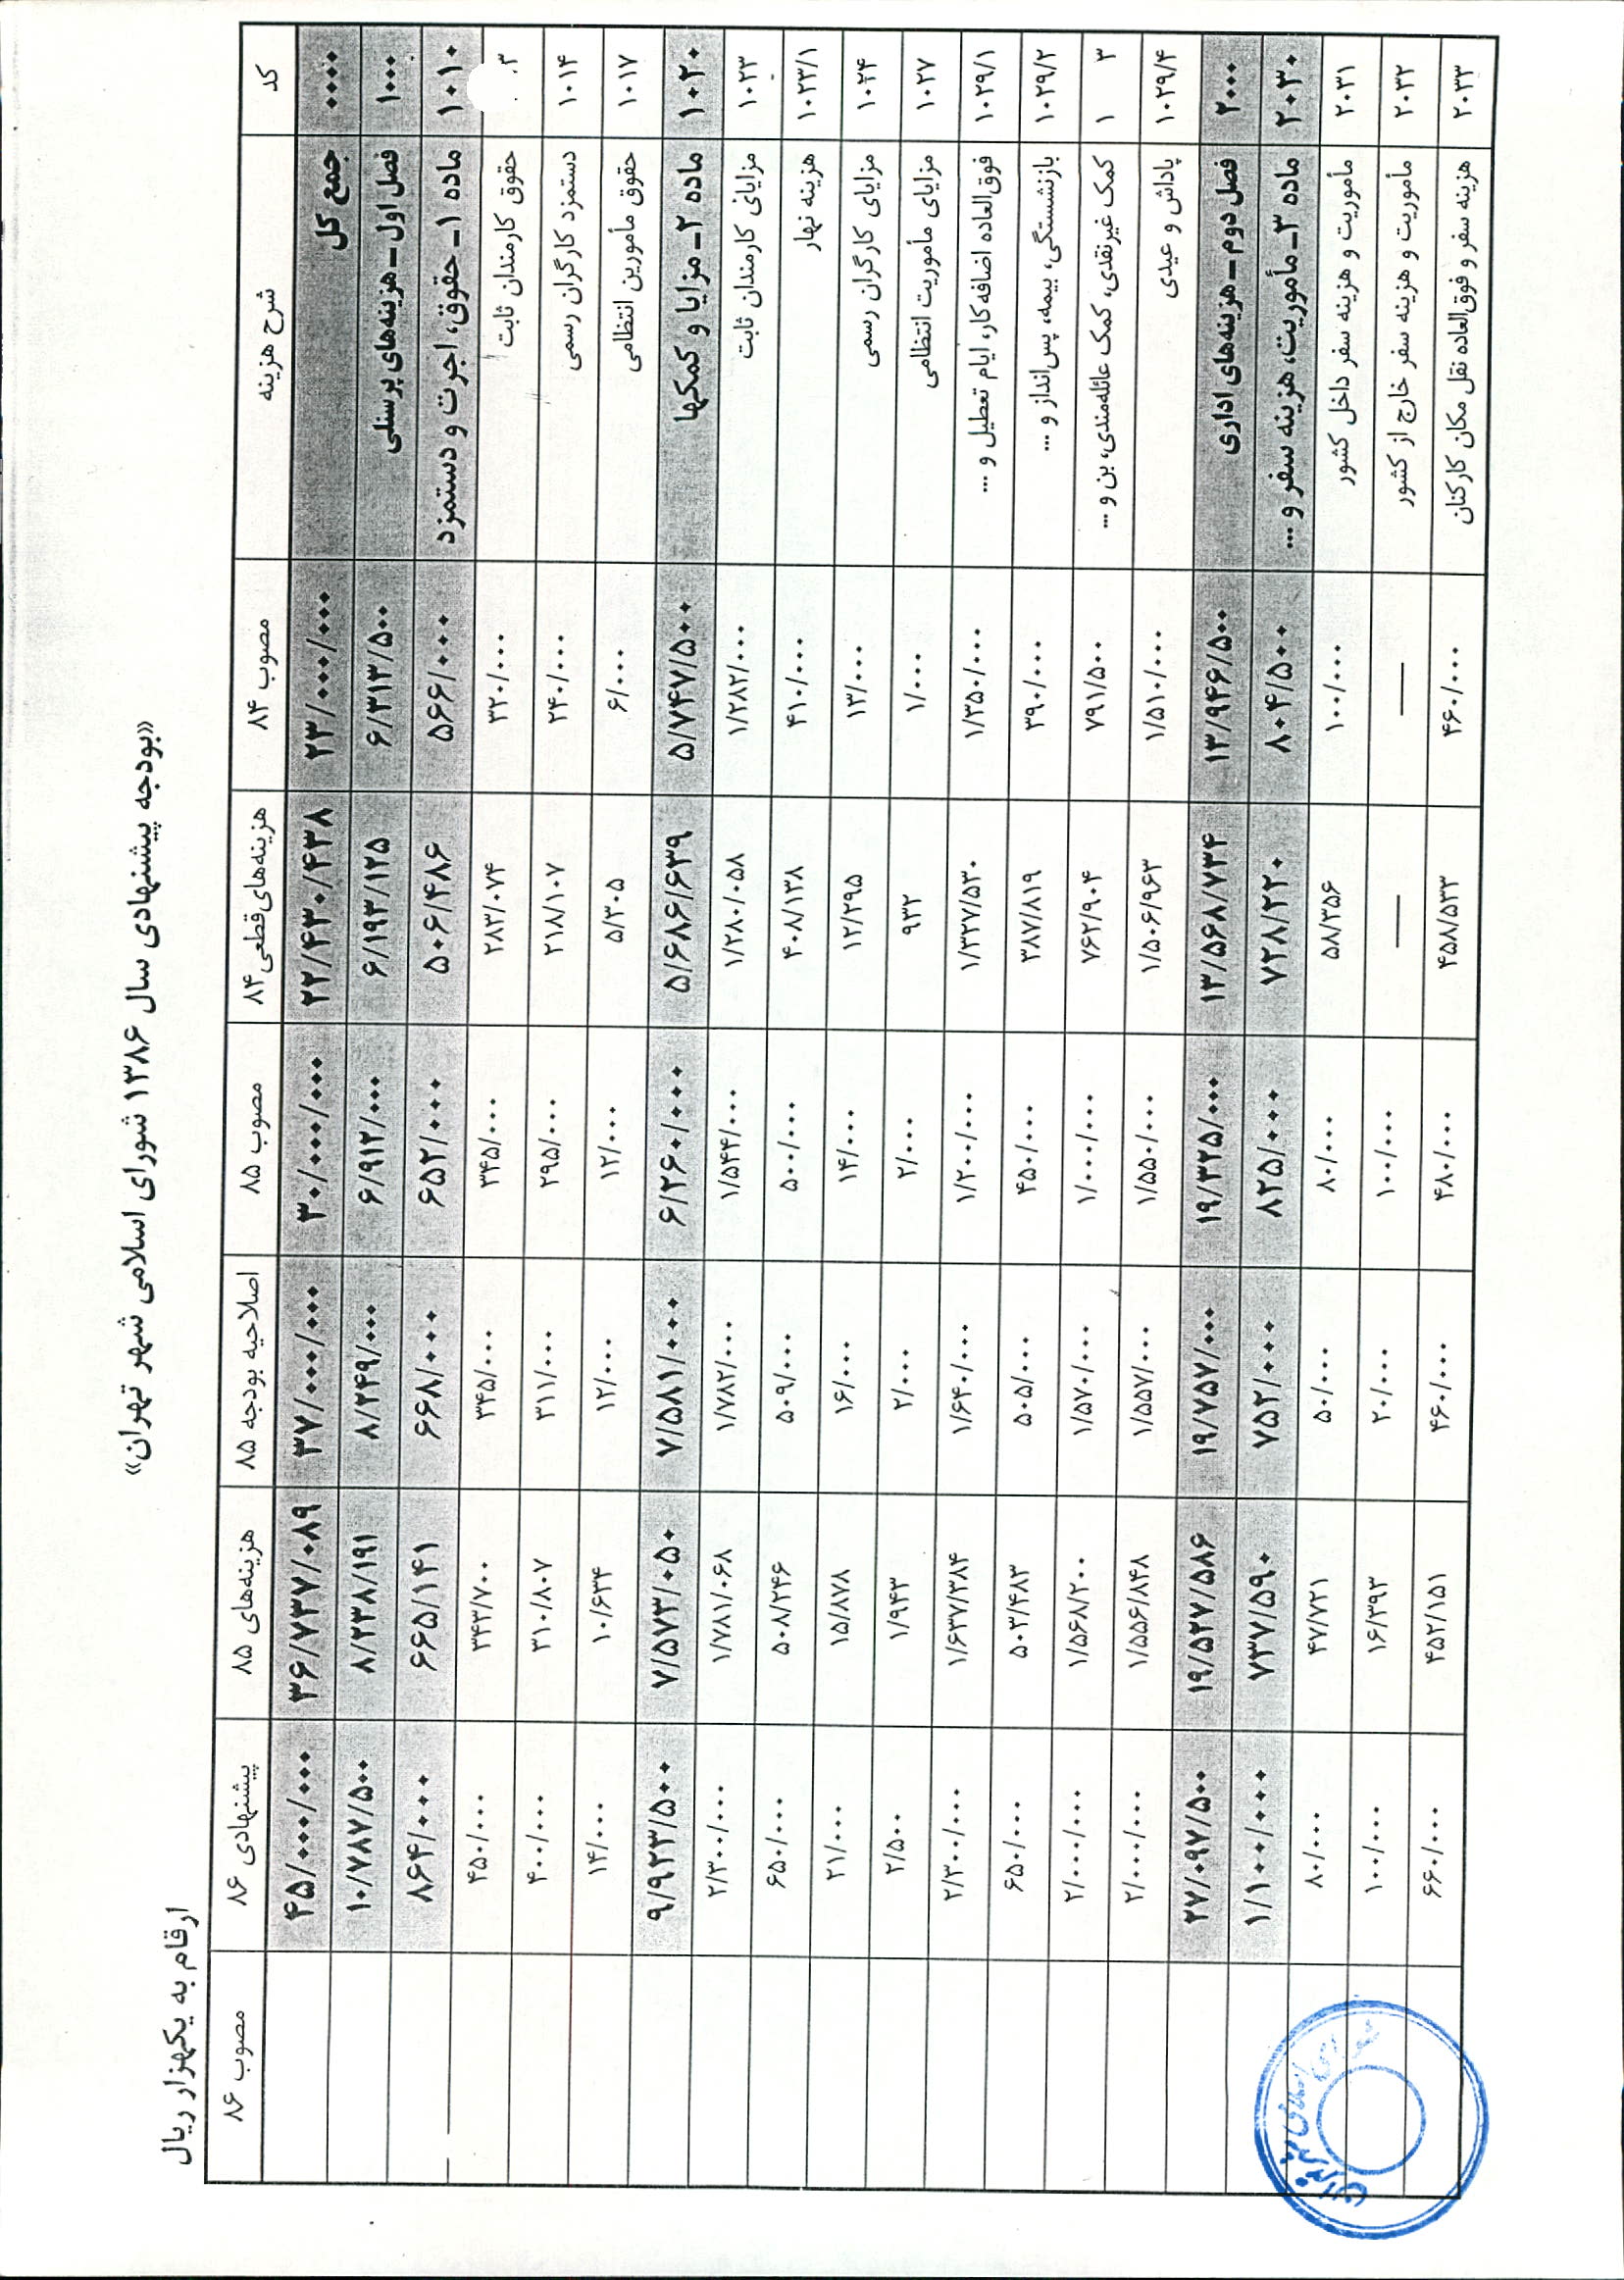 «بودجه پیشنهادی سال ۱۳۸۶ شورای اسلامی شهر تهران»
ارقام به یکهزار ریال
کد شرح هزینه مصوب ۸۴ هزینه‌های قطعی ۸۴ مصوب ۸۵ اصلاحیه بودجه ۸۵ هزینه‌های ۸۵ پیشنهادی ۸۶ مصوب ۸۶
۰۰۰۰ جمع کل ۲۳/۰۰۰/۰۰۰ ۲۲/۴۳۰/۴۳۸ ۳۰/۰۰۰/۰۰۰ ۳۷/۰۰۰/۰۰۰ ۳۶/۷۳۷/۰۸۹ ۴۵/۰۰۰/۰۰۰
۱۰۰۰ فصل اول ـ هزینه‌های پرسنلی ۶/۳۱۳/۵۰۰ ۶/۱۹۳/۱۲۵ ۶/۹۱۲/۰۰۰ ۸/۲۴۹/۰۰۰ ۸/۲۳۸/۱۹۱ ۱۰/۷۸۷/۵۰۰
۱۰۱۰ ماده ۱ـ حقوق، اجرت و دستمزد ۵۶۶/۰۰۰ ۵۰۶/۴۸۶ ۶۵۲/۰۰۰ ۶۶۸/۰۰۰ ۶۶۵/۱۴۱ ۸۶۴/۰۰۰
۳ حقوق کارمندان ثابت ۳۲۰/۰۰۰ ۲۸۳/۰۷۴ ۳۴۵/۰۰۰ ۳۴۵/۰۰۰ ۳۴۳/۷۰۰ ۴۵۰/۰۰۰
۱۰۱۴ دستمزد کارگران رسمی ۲۴۰/۰۰۰ ۲۱۸/۱۰۷ ۲۹۵/۰۰۰ ۳۱۱/۰۰۰ ۳۱۰/۸۰۷ ۴۰۰/۰۰۰
۱۰۱۷ حقوق مأمورین انتظامی ۶/۰۰۰ ۵/۳۰۵ ۱۲/۰۰۰ ۱۲/۰۰۰ ۱۰/۶۳۴ ۱۴/۰۰۰
۱۰۲۰ ماده ۲ـ مزایا و کمکها ۵/۷۴۷/۵۰۰ ۵/۶۸۶/۶۳۹ ۶/۲۶۰/۰۰۰ ۷/۵۸۱/۰۰۰ ۷/۵۷۳/۰۵۰ ۹/۹۲۳/۵۰۰
۱۰۲۳ مزایائی کارمندان ثابت ۱/۲۸۲/۰۰۰ ۱/۲۸۰/۰۵۸ ۱/۵۴۴/۰۰۰ ۱/۷۸۲/۰۰۰ ۱/۷۸۱/۰۶۸ ۲/۳۰۰/۰۰۰
۱۰۲۳/۱ هزینه نهار ۴۱۰/۰۰۰ ۴۰۸/۱۳۸ ۵۰۰/۰۰۰ ۵۰۹/۰۰۰ ۵۰۸/۲۴۶ ۶۵۰/۰۰۰
۱۰۲۴ مزایای کارگران رسمی ۱۳/۰۰۰ ۱۲/۲۹۵ ۱۴/۰۰۰ ۱۶/۰۰۰ ۱۵/۸۷۸ ۲۱/۰۰۰
۱۰۲۷ مزایای مأموریت انتظامی ۱/۰۰۰ ۹۳۲ ۲/۰۰۰ ۲/۰۰۰ ۱/۹۴۳ ۲/۵۰۰
۱۰۲۹/۱ فوق‌العاده اضافه‌کار، ایام تعطیل و ... ۱/۳۵۰/۰۰۰ ۱/۳۲۷/۵۳۰ ۱/۲۰۰/۰۰۰ ۱/۶۴۰/۰۰۰ ۱/۶۳۷/۳۸۴ ۲/۳۰۰/۰۰۰
۱۰۲۹/۲ بازنشستگی، بیمه، پس‌انداز و ... ۳۹۰/۰۰۰ ۳۸۷/۸۱۹ ۴۵۰/۰۰۰ ۵۰۵/۰۰۰ ۵۰۳/۴۸۳ ۶۵۰/۰۰۰
۱ ۳ کمک غیرنقدی، کمک عائله‌مندی، بن و ... ۷۹۱/۵۰۰ ۷۶۲/۹۰۴ ۱/۰۰۰/۰۰۰ ۱/۵۷۰/۰۰۰ ۱/۵۶۸/۲۰۰ ۲/۰۰۰/۰۰۰
۱۰۲۹/۴ پاداش و عیدی ۱/۵۱۰/۰۰۰ ۱/۵۰۶/۹۶۳ ۱/۵۵۰/۰۰۰ ۱/۵۵۷/۰۰۰ ۱/۵۵۶/۸۴۸ ۲/۰۰۰/۰۰۰
۲۰۰۰ فصل دوم ـ هزینه‌های اداری ۱۳/۹۴۶/۵۰۰ ۱۳/۵۶۸/۷۳۴ ۱۹/۳۲۵/۰۰۰ ۱۹/۷۵۷/۰۰۰ ۱۹/۵۲۷/۵۸۶ ۲۷/۰۹۷/۵۰۰
۲۰۳۰ ماده ۳ـ مأموریت، هزینه سفر و ... ۸۰۴/۵۰۰ ۷۲۸/۲۲۰ ۸۲۵/۰۰۰ ۷۵۲/۰۰۰ ۷۳۷/۵۹۰ ۱/۱۰۰/۰۰۰
۲۰۳۱ مأموریت و هزینه سفر داخل کشور ۱۰۰/۰۰۰ ۵۸/۳۵۶ ۸۰/۰۰۰ ۵۰/۰۰۰ ۴۷/۷۲۱ ۸۰/۰۰۰
۲۰۳۲ مأموریت و هزینه سفر خارج از کشور — — ۱۰۰/۰۰۰ ۲۰/۰۰۰ ۱۶/۳۹۳ ۱۰۰/۰۰۰
۲۰۳۳ هزینه سفر و فوق‌العاده نقل مکان کارکنان ۴۶۰/۰۰۰ ۴۵۸/۵۳۳ ۴۸۰/۰۰۰ ۴۶۰/۰۰۰ ۴۵۲/۱۵۱ ۶۶۰/۰۰۰
شورای اسلامی شهر